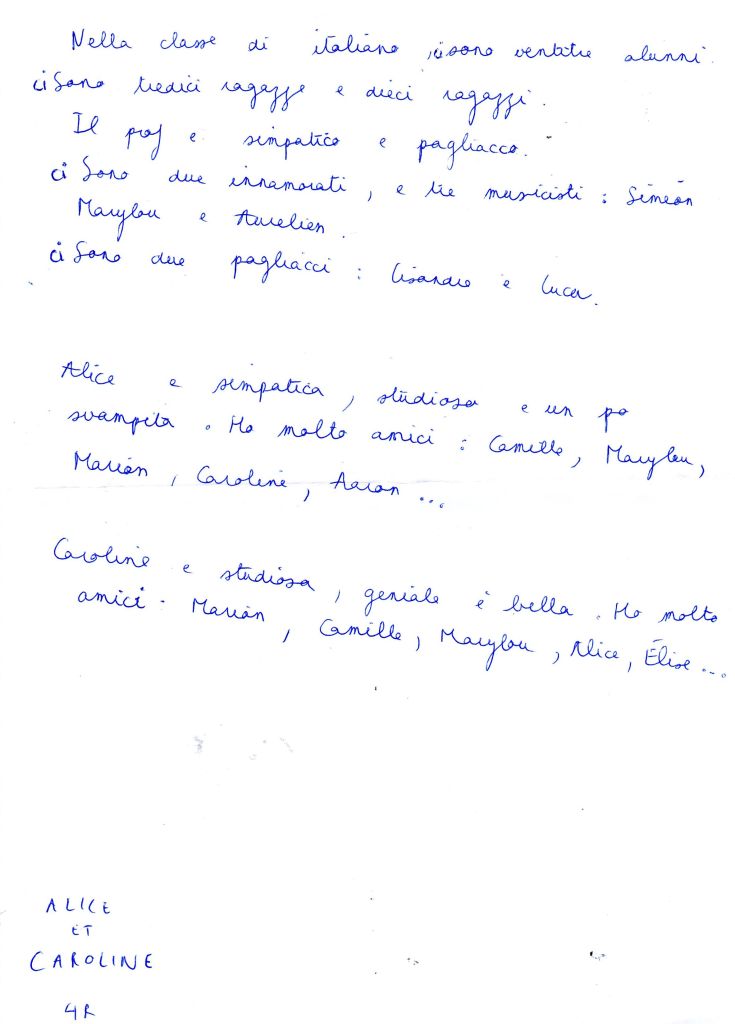 Nella classe di italiano, ci sono ventitre alunni.
ci Sono tredici ragazze e dieci ragazzi.
Il prof e simpatico e pagliacco.
ci Sono due innamorati, e tre musicisti : Siméon
Marylou e Aurelien.
ci Sono due pagliacci : Lisandre e Luca.
Alice e simpatica, studiosa e un po
svampita. Ho molto amici : Camille, Marylou,
Marian, Caroline, Aaron ...
Caroline e studiosa, geniale è bella. Ho molto
amici. Marian, Camille, Marylou, Alice, Élise...
ALICE
ET
CAROLINE
4R